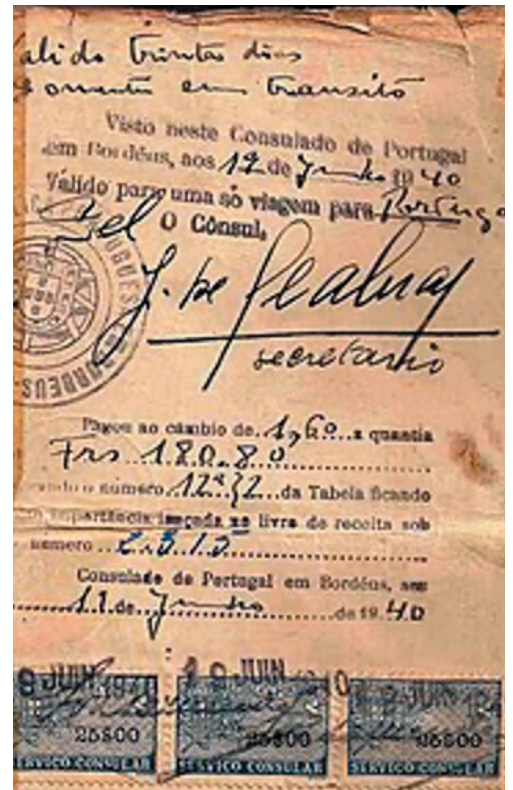 alido trinta dias
omente em transito
Visto neste Consulado de Portugal
em Bordéus, aos 19 de Junho 1940
Válido para uma só viagem para Portugal
O Cônsul,
secretario
Pagou ao câmbio de 1,60 a quantia
Frs 180.80
o número 12 da Tabela ficando
importância lançada no livro de receita sob
numero
Consulado de Portugal em Bordéus, aos
de Junho de 1940
JUIN 19 JUIN JUN
25$00 25$00 25$00
SERVIÇO CONSULAR SERVIÇO CONSULAR SERVIÇO CONSULAR